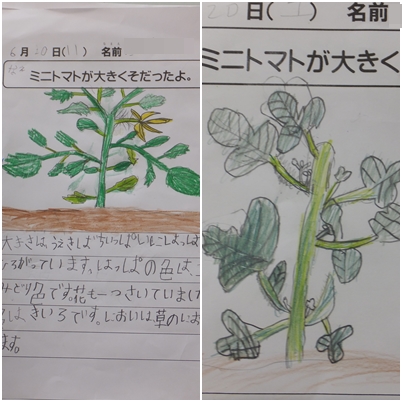 6月20日( ) 名前
ミニトマトが大きくそだったよ。
大きさは、うえきばちいっぱいに
ろがっています。はっぱの色は、
みどり色です。花も一つさいていまし
は、きいろです。においは草のにお
ます。
20日( ) 名前
ミニトマトが大きく